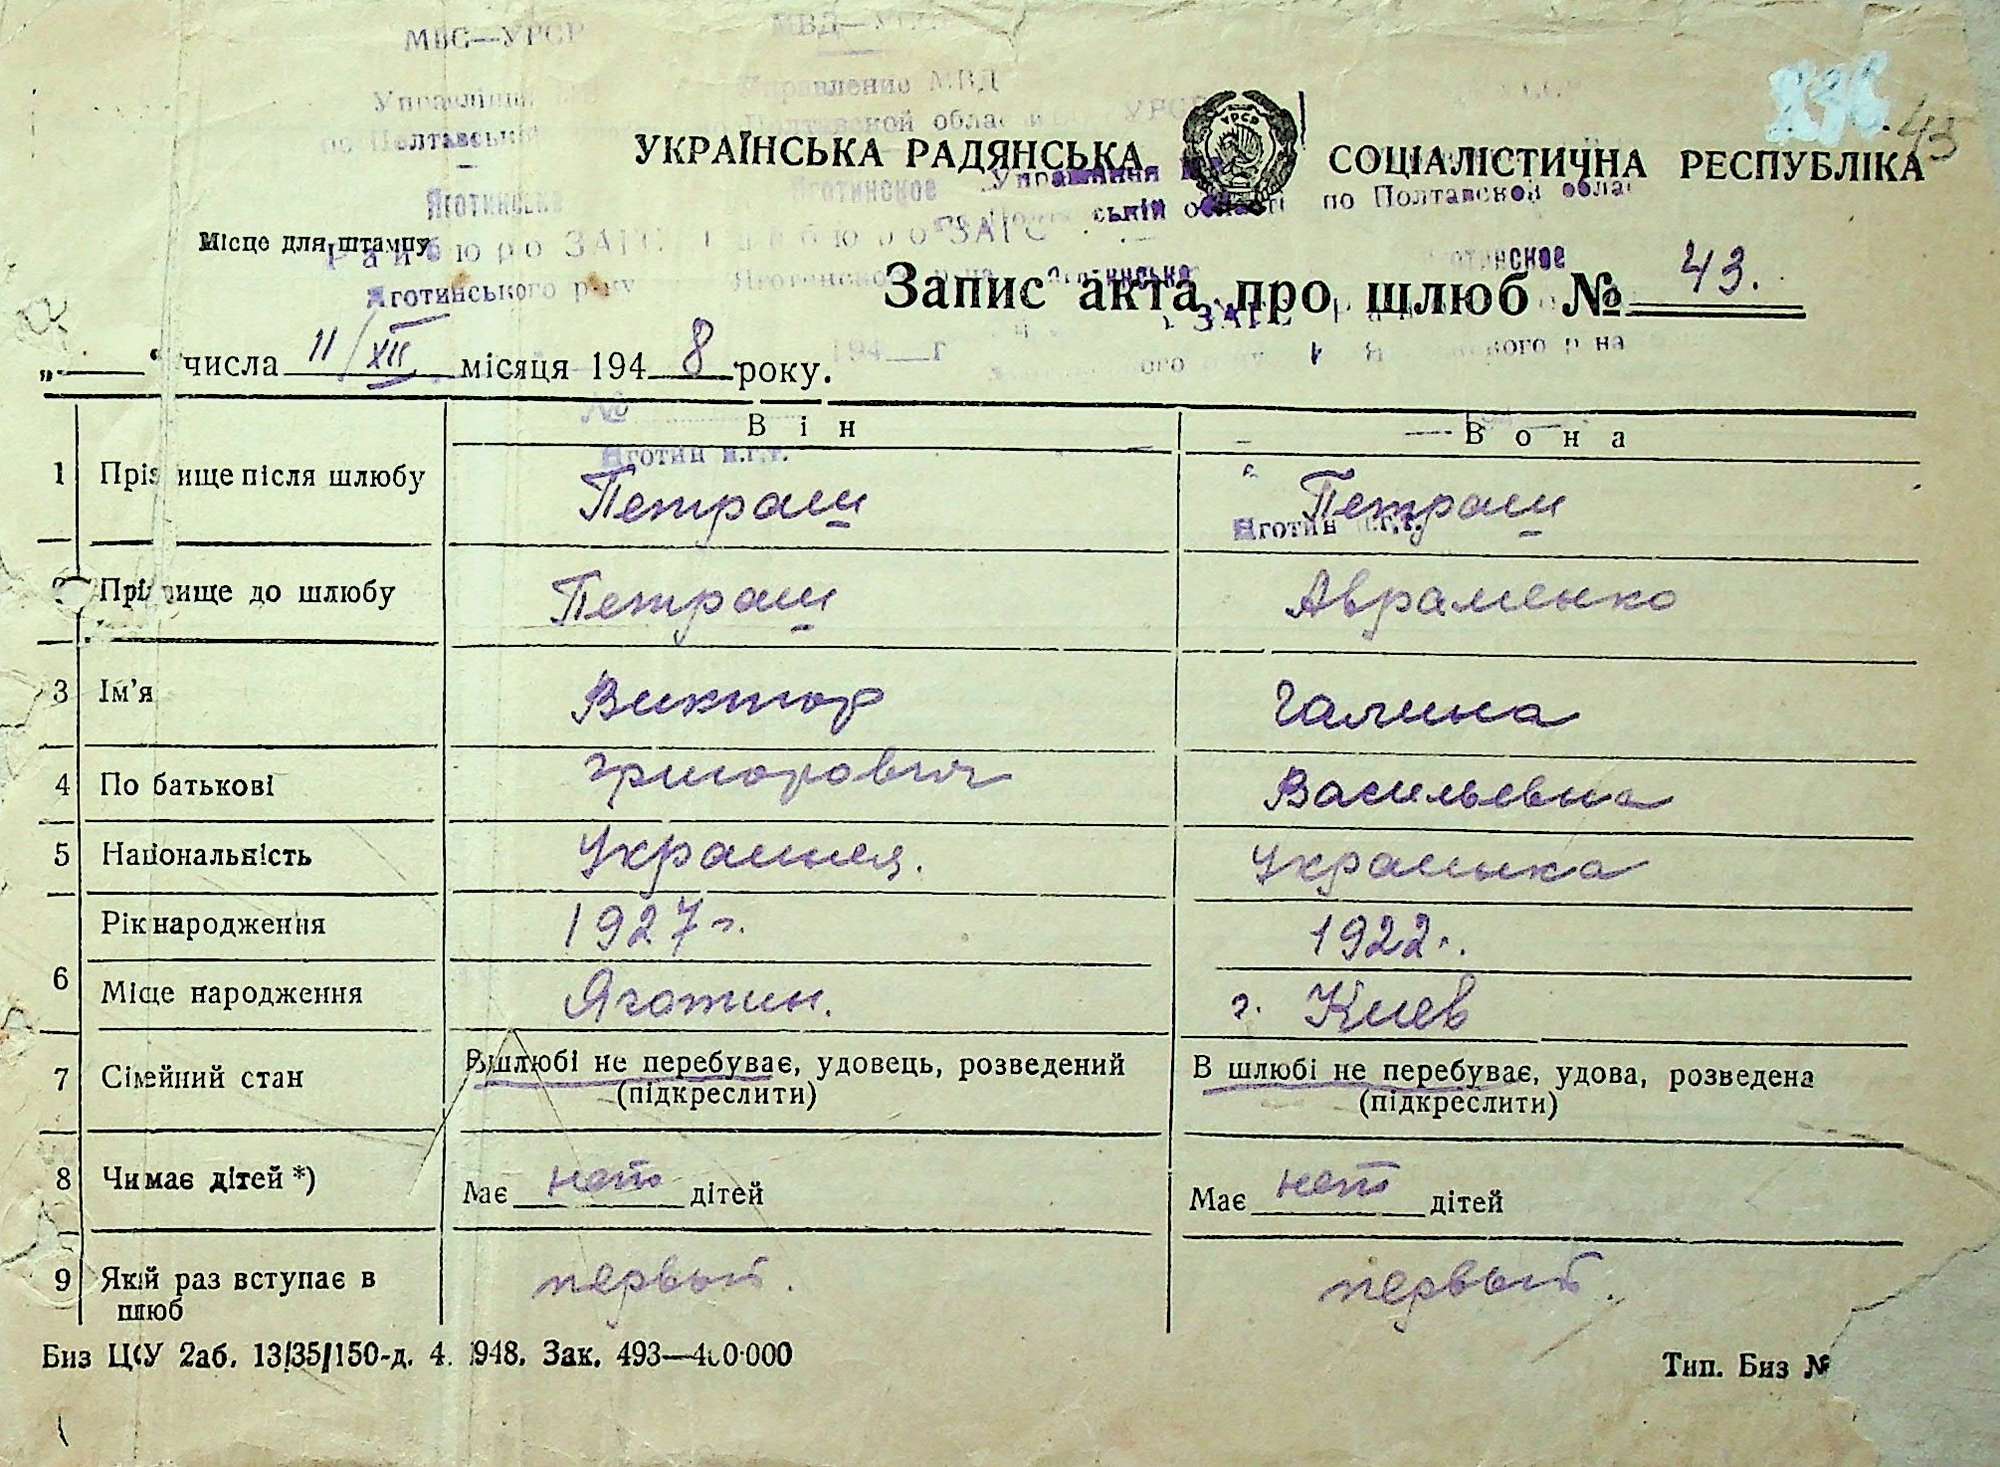 МВС—УРСР
МВД—
Управление МВД
по Полтавській
Полтавской обла
УРСР
236
43
УКРАЇНСЬКА РАДЯНСЬКА СОЦІАЛІСТИЧНА РЕСПУБЛІКА
Управління
ській області по Полтавской обла
Яготинське
Яготинское
Місце для штампу
Райбюро ЗАГС
бюро ЗАГС
Яготинського р-ну
Яготинского р-на
Запис акта про шлюб № 43.
„ “ числа 11/XII місяця 194 8 року.
194 г
№
Він
Вона
Яготин п.г.т.
1 Прізвище після шлюбу Петраш Петраш
Яготин п.г.т.
2 Прізвище до шлюбу Петраш Авраменко
3 Ім'я Виктор Галина
4 По батькові Григорович Васильевна
5 Національність Украинец. Украинка
6 Рік народження 1927 г. 1922 г.
Місце народження Яготин. г. Киев
7 Сімейний стан В шлюбі не перебуває, удовець, розведений В шлюбі не перебуває, удова, розведена
(підкреслити) (підкреслити)
8 Чи має дітей *) Має нет дітей Має нет дітей
9 Який раз вступає в первый. первый.
шлюб
Биз ЦСУ 2аб. 13/35/150-д. 4. 1948. Зак. 493—400.000 Тип. Биз №